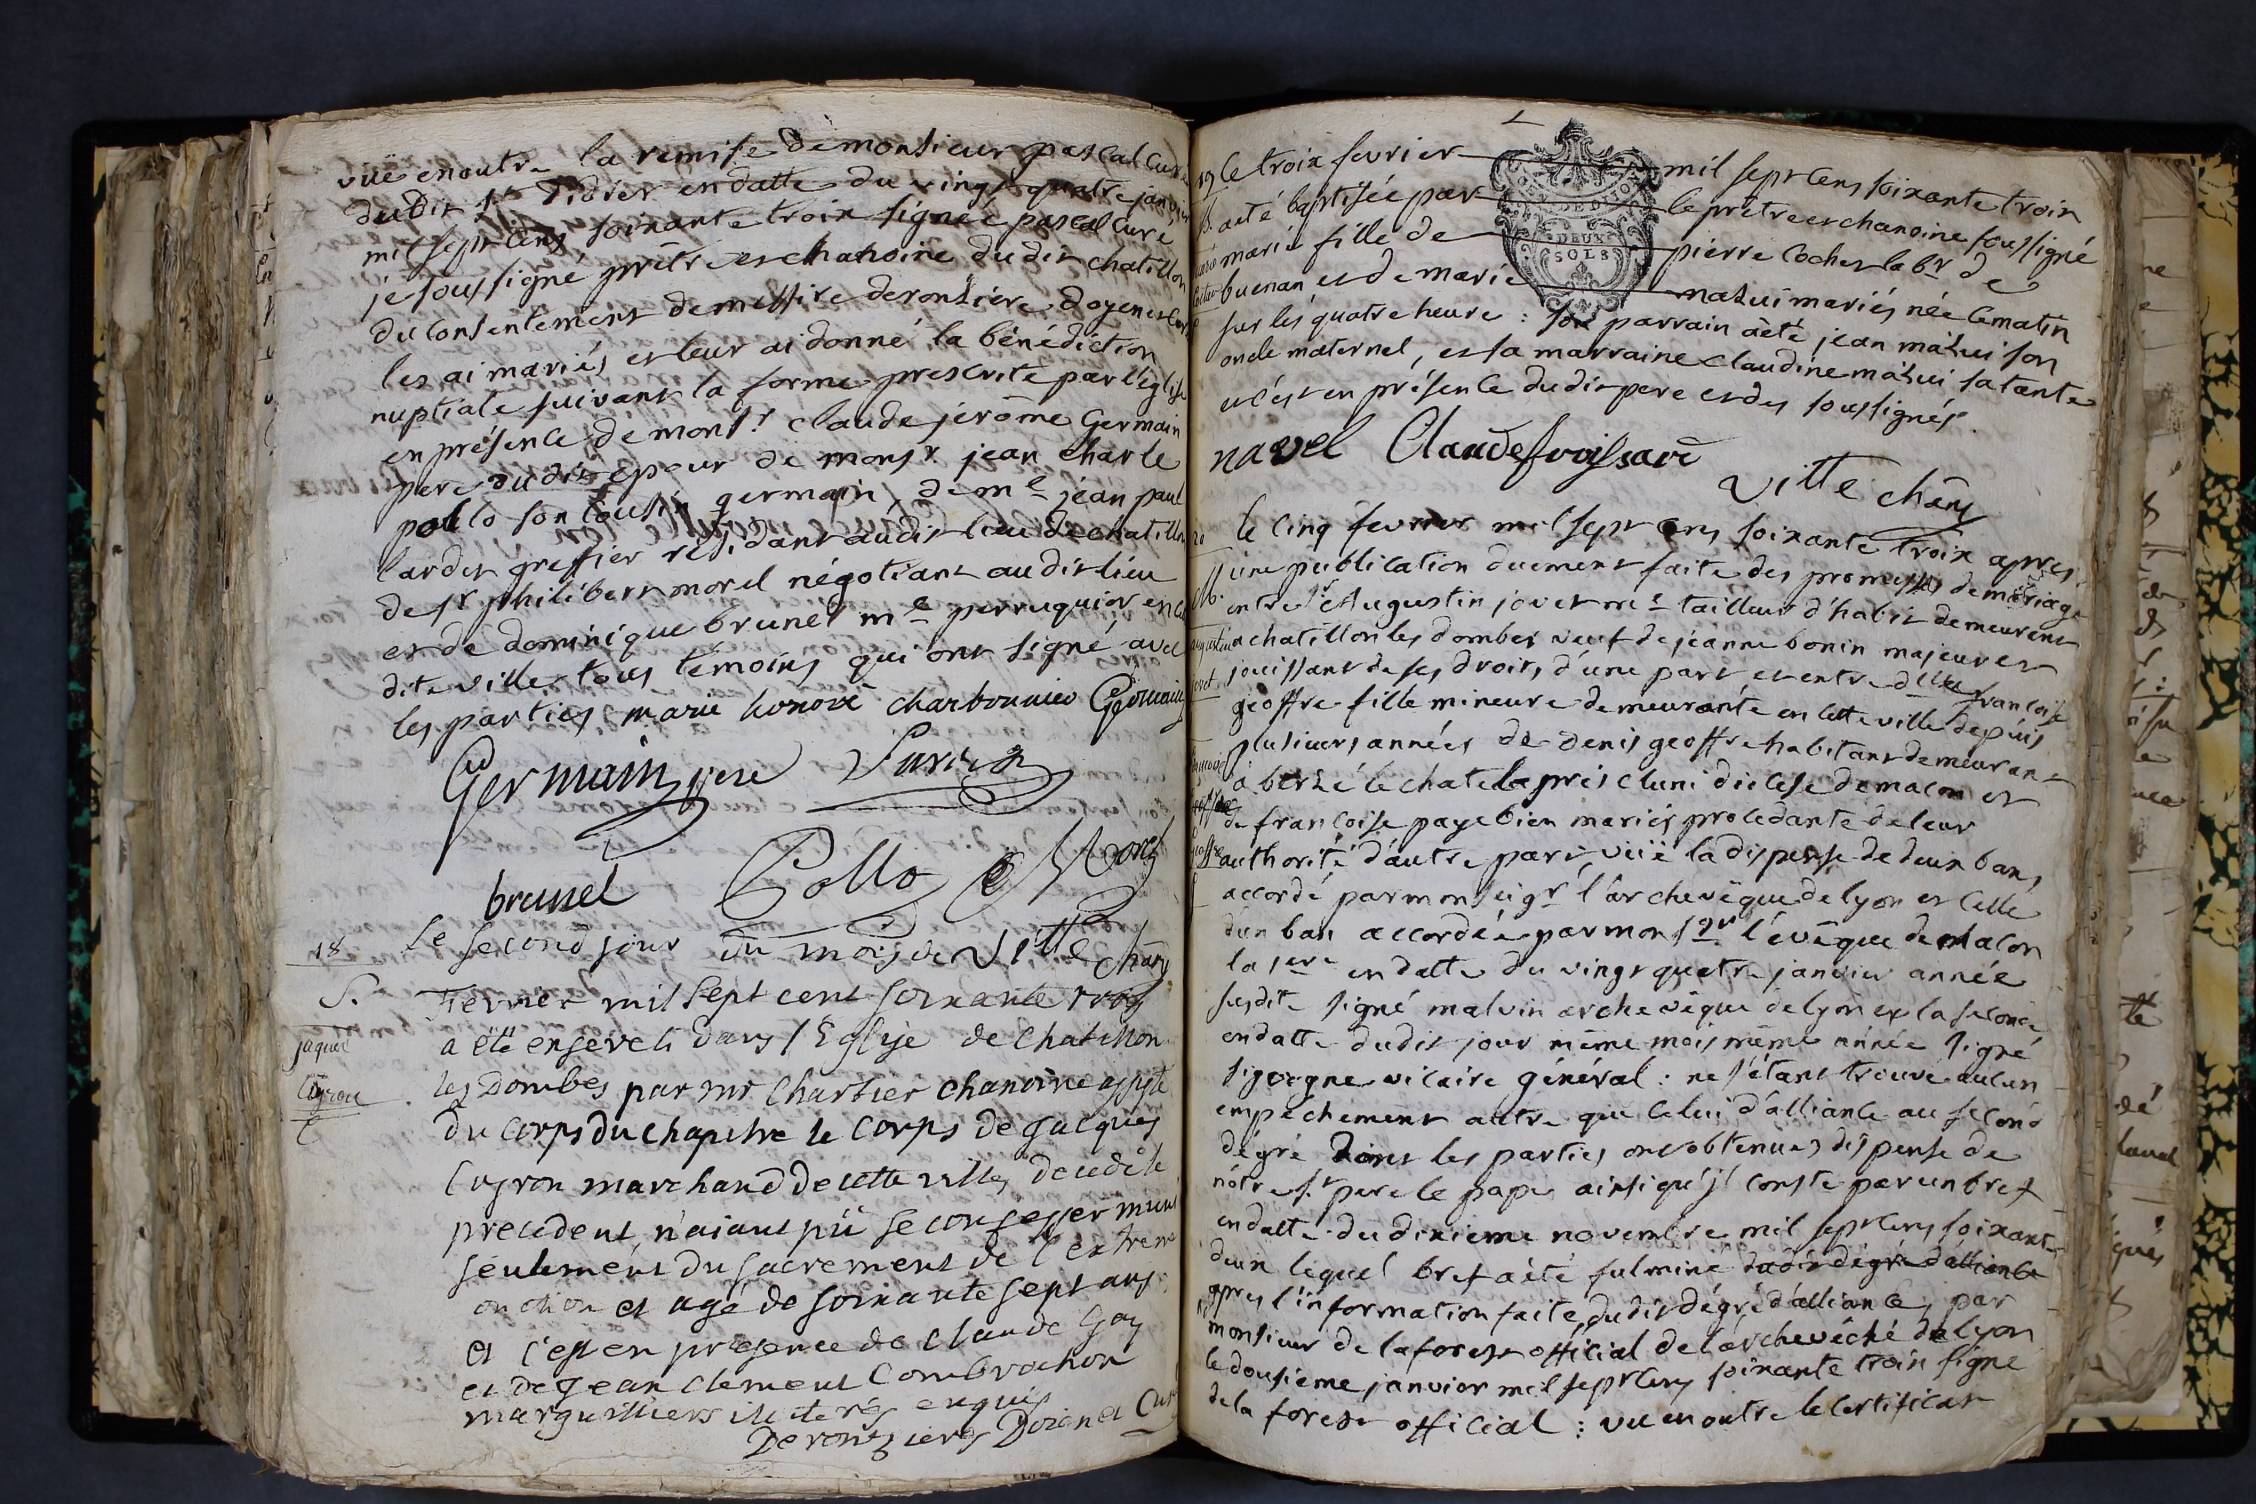 vüe en outre la remise de monsieur pascal curé
dudit st Didier en datte du vingt quatre janvier
mil sept cens soixante troix signée pascal curé
je soussigné prêtre et chanoine dudit chatillon
du consentement de messire deronzière doyen et curé
les ai mariés et leur ai donné la bénédiction
nuptiale suivant la forme prescrite par l'église
en présence de monsr claude jerôme Germain
pere dudit epour de monsr jean charle
pollo son cousin germain, de me jean paul
lardet greffier residant audit lieu de chatillon
de sr philibert morel négotiant audit lieu
et de dominique brunet me perruquier en cette
dite ville tous témoins qui ont signé avec
les parties marie honoré charbonnier Germain
Germain pere Lardet
brunel Pollo Morel
18 Le second jour du mois de Ville chan
S. Fevrier mil sept cent soixante trois
jaques a été enseveli dans l'Eglise de Chatillon
Cuyron les Dombes par mr Chartier chanoine assisté
du corps du chapitre le corps de Jacques
Cuyron marchand de cette ville, decedé le
precedent, n'aiant pû se confesser muni
seulement du sacrement de l'extreme
onction et agé de soixante sept ans
et c'est en presence de claude Goy
et de Jean clement Combrochon
marguilliers illiterés enquis
Deronziere Doien et Curé
19 Le troix fevrier mil sept cens soixante troix
B. a eté baptisée par le prêtre et chanoine soussigné
marie fille de pierre cochet labr de
buenan et de marie matui mariés née le matin
sur les quatre heure : son parrain a été jean matui son
oncle maternel, et sa marraine claudine matui sa tante
et c'est en présence dudit pere et des soussignés.
GEN. DE DIJON
DEUX
SOLS
navel Claude froissard
Ville chan
20 le cinq fevrier mil sept cens soixante troix apres
M. une publication duement faite des promesses de mariage
entre sr Augustin jovet me tailleur d'habit demeurant
augustin a chatillon les dombes veuf de jeanne bonin majeur et
jovet jouissant de ses droits d'une part et entre dlle françoise
geoffre fille mineure demeurante en cette ville depuis
plusieurs années de denis geoffre habitant demeurant
à berzé le chatel près cluni diocese de macon et
de françoise payebien mariés procedante de leur
geoffre authorité d'autre part, vüe la dispense de deux bans
accordé par monseigr l'archevêque de lyon et celle
d'un ban accordée par monsgr l'evêque de macon
la 1ere en datte du vingt quatre janvier année
susdite signé malvin archevêque de lyon et la seconde
en datte dudit jour même mois même année signé
sigorgne vicaire général : ne s'étant trouvé aucun
empêchement autre que celui d'alliance au second
dégré dont les parties ont obtenues dispense de
nôtre st pere le pape ainsi qu'il conste par un bref
en datte du dixieme novembre mil sept cens soixante
deux lequel bref a été fulminé dudit dégré d'alliance
apres l'information faite, dudit dégré d'alliance, par
monsieur de laforest official de l'archevêché de lyon
le dousieme janvier mil sept cens soixante troix signé
de la forest official : vu en outre le certificat